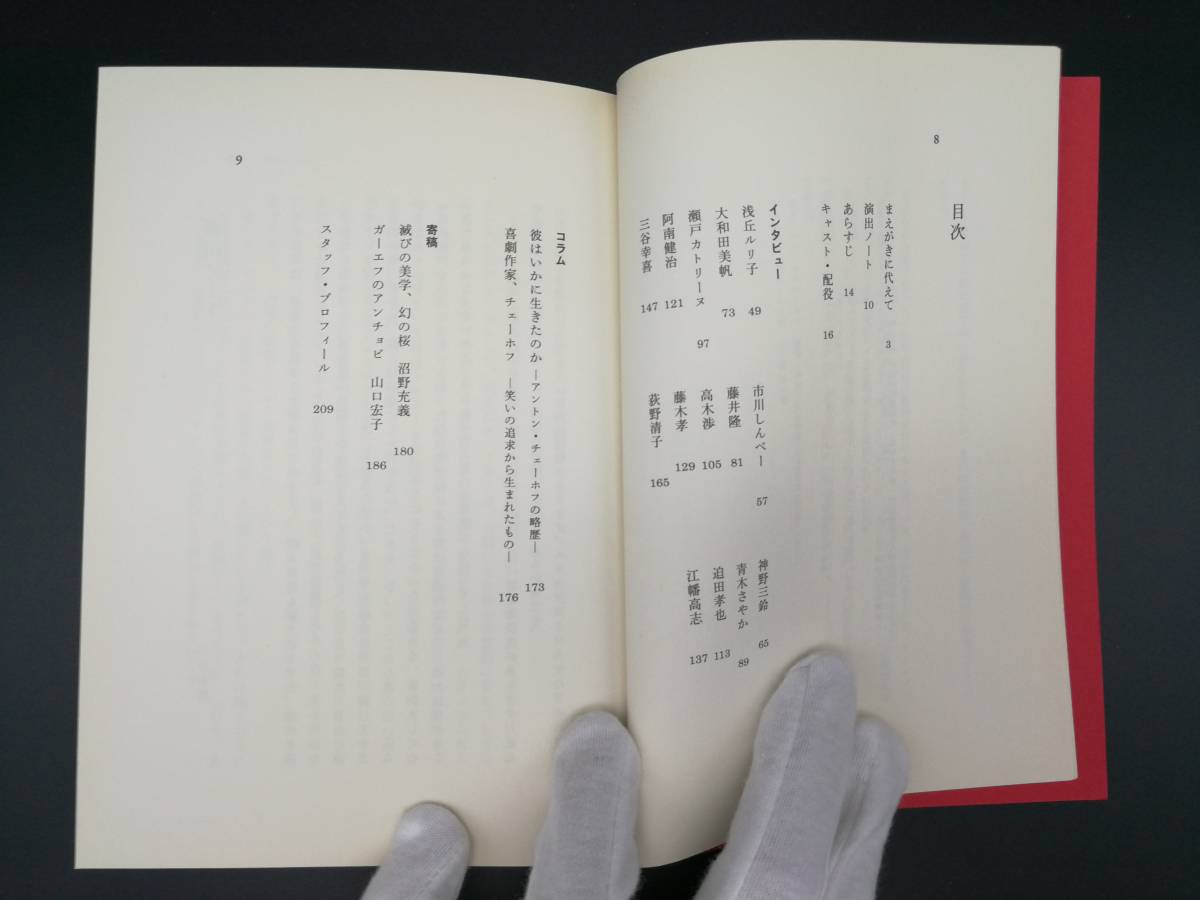 8
目次
まえがきに代えて 3
演出ノート 10
あらすじ 14
キャスト・配役 16
インタビュー
浅丘ルリ子 49 市川しんぺー 57 神野三鈴 65
大和田美帆 73 藤井隆 81 青木さやか 89
瀬戸カトリーヌ 97 高木渉 105 迫田孝也 113
阿南健治 121 藤木孝 129 江幡高志 137
三谷幸喜 147 荻野清子 165
コラム
彼はいかに生きたのか ―アントン・チェーホフの略歴― 173
喜劇作家、チェーホフ ―笑いの追求から生まれたもの― 176
寄稿
滅びの美学、幻の桜 沼野充義 180
ガーエフのアンチョビ 山口宏子 186
スタッフ・プロフィール 209
9